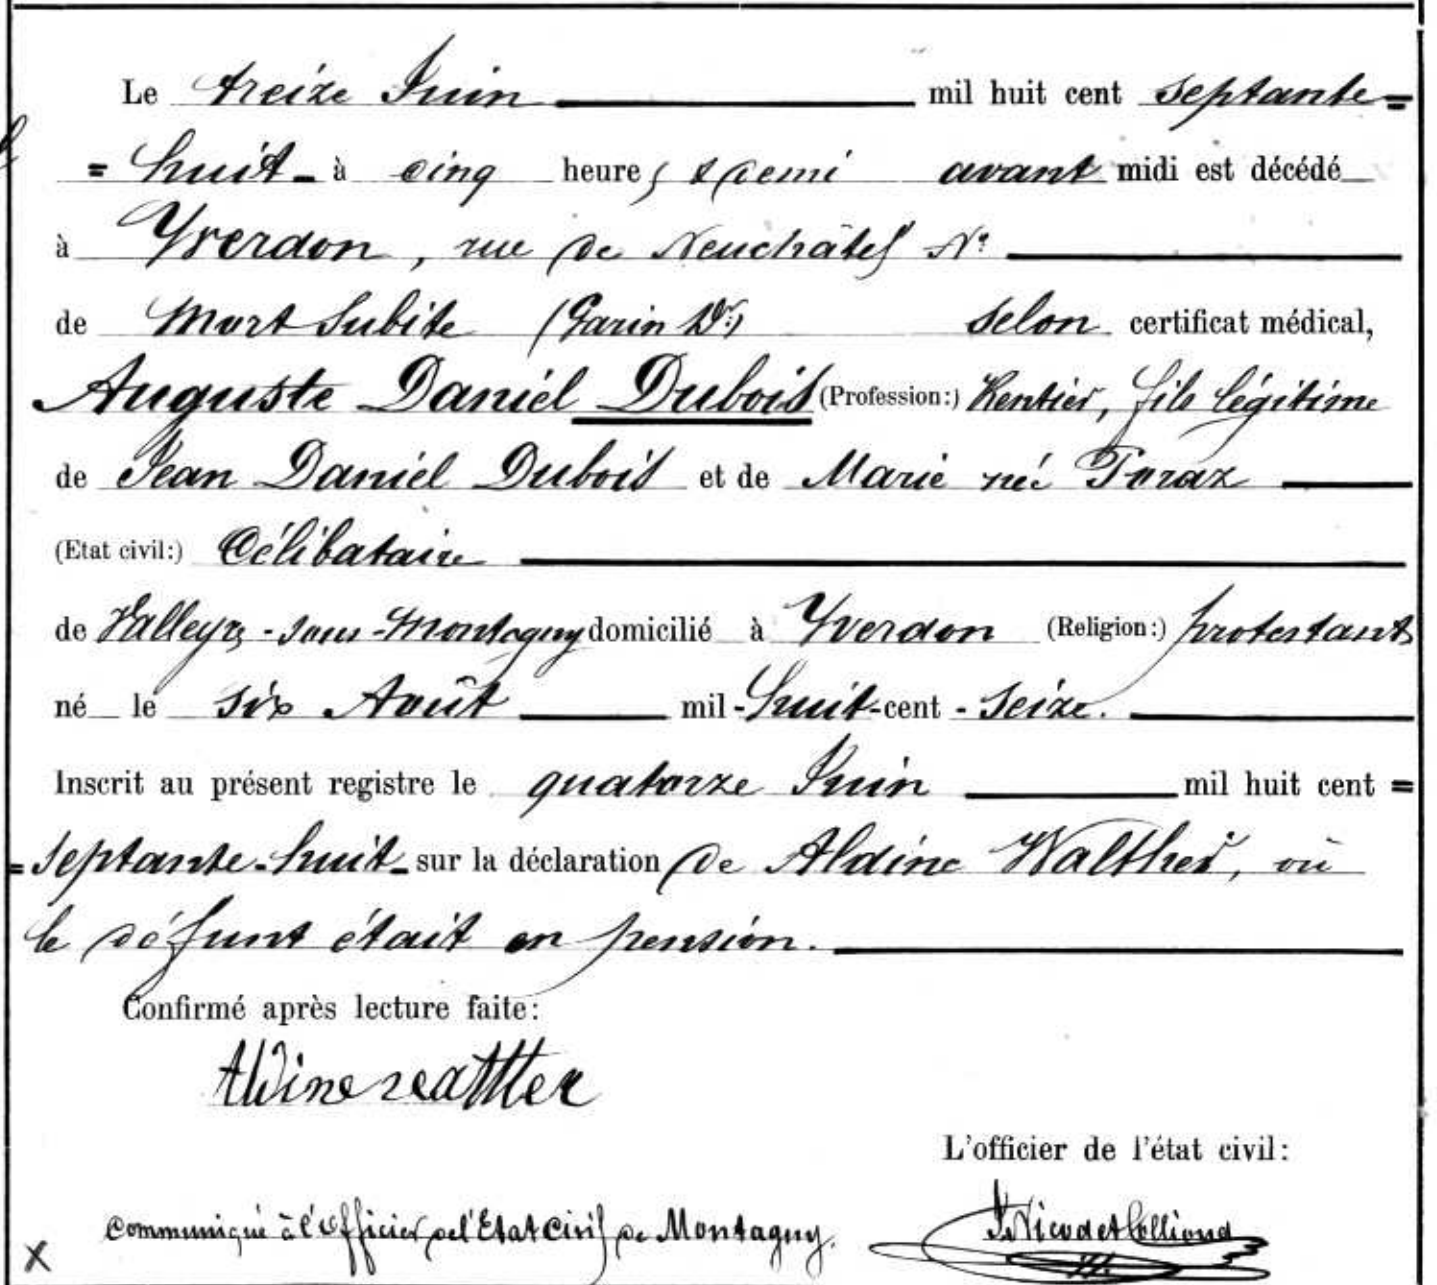 Le treize Juin mil huit cent septante=
= huit - à cinq heures & demi avant midi est décédé
à Yverdon, rue de Neuchâtel N°
de Mort Subite (Garin Dr) selon certificat médical,
Auguste Daniel Dubois (Profession:) Rentier, fils légitime
de Jean Daniel Dubois et de Marie née
(Etat civil:) Célibataire
de Valleyres-sous-Montagny domicilié à Yverdon (Religion:) protestant
né le six Août mil-huit-cent-seize.
Inscrit au présent registre le quatorze Juin mil huit cent =
= septante-huit - sur la déclaration de Aldine Walther, où
le défunt était en pension.
Confirmé après lecture faite:
Aldine
L'officier de l'état civil:
Communiqué à l'officier de l'Etat Civil de Montagny.
X